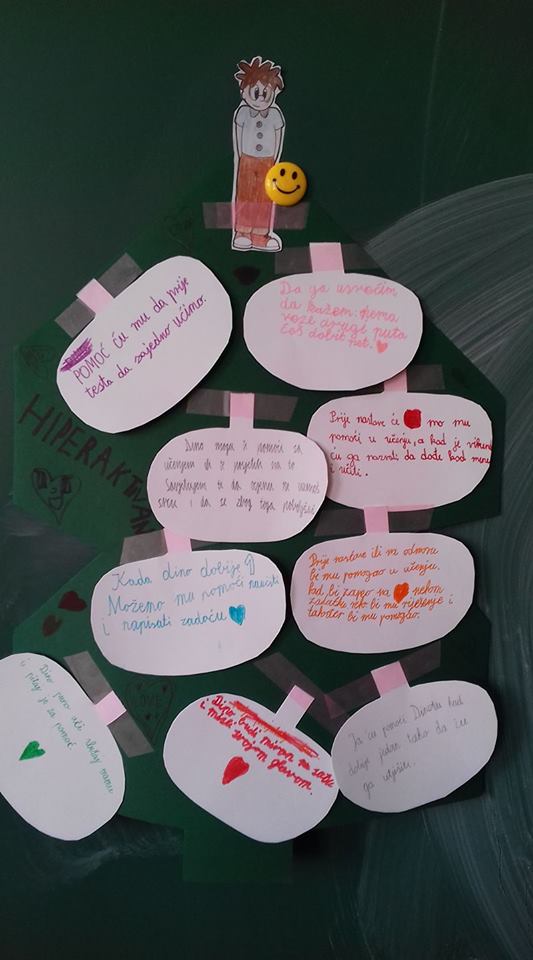 POMOĆ ću mu da prije
testa da zajedno učimo.
Da ga usrećim
da kažem: nema
veze drugi puta
ćeš dobit pet.
HIPERAKTIVAN
Prije nastave će mo mu
pomoći u učenju, a kad je vikend
ću ga nazvati da dođe kod mene
i učiti.
Dino mogu ti pomoći sa
učenjem da se
Savjetujem ti da
srce i da se zbog toga
Kada dino dobije 1
Možemo mu pomoći naučiti
i napisati zadaću
Prije nastave ili na odmoru
bi mu pomogao u učenju.
kad bi zapeo na nekom
zadatku reko bi mu rješenje i
također bi mu pomogao.
Dino puno uči slušaj mamu
i pitaj je za pomoć
Dino budi miran na satu
i misli svojom glavom.
Ja ću pomoći Dinotu kad
dobije jedan tako da ću
ga utješiti.